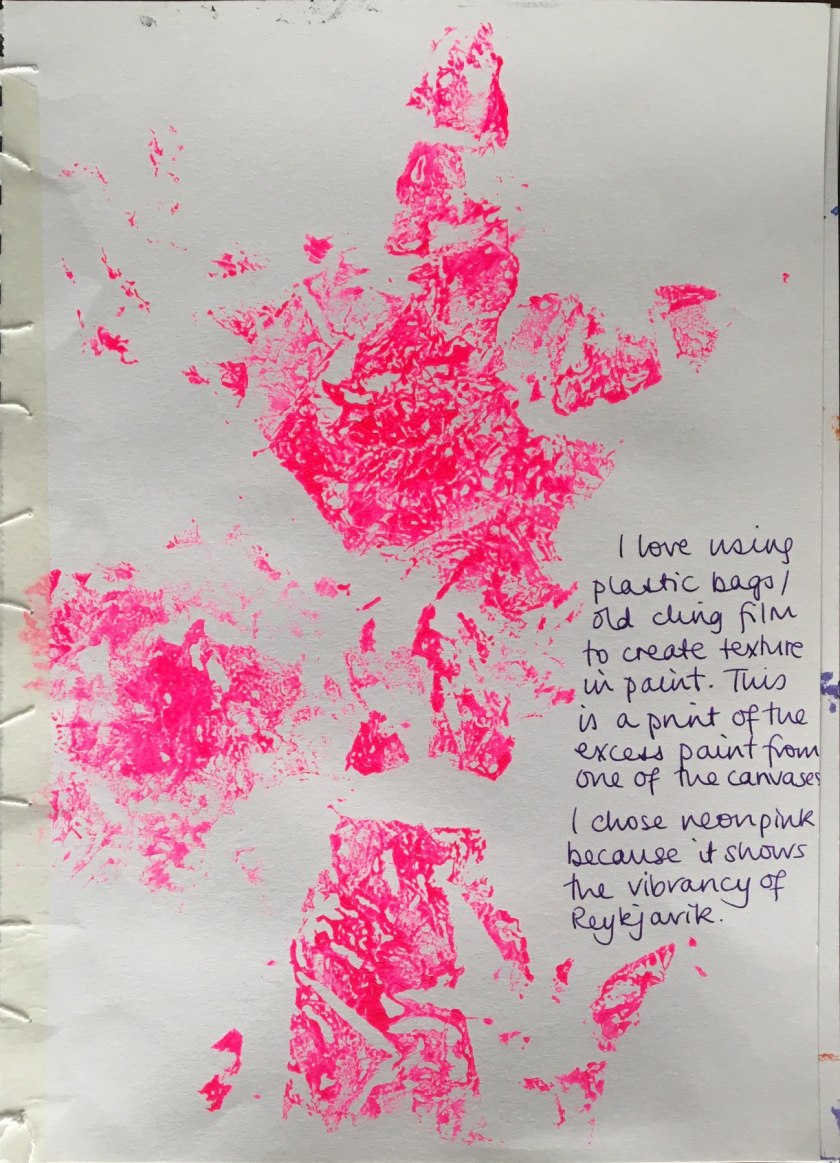 I love using
plastic bags/
old cling film
to create texture
in paint. This
is a print of the
excess paint from
one of the canvases
I chose neon pink
because it shows
the vibrancy of
Reykjavik.